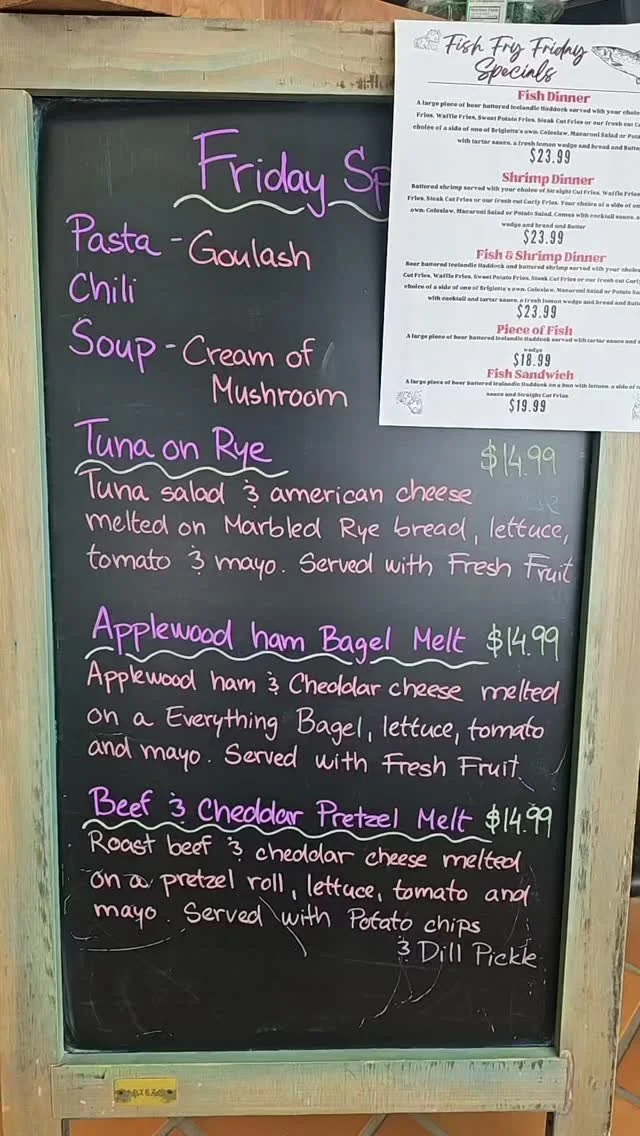 Friday Sp
Pasta - Goulash
Chili
Soup - Cream of
Mushroom
Tuna on Rye $14.99
Tuna salad & american cheese
melted on Marbled Rye bread, lettuce,
tomato & mayo. Served with Fresh Fruit
Applewood ham Bagel Melt $14.99
Applewood ham & Cheddar cheese melted
on a Everything Bagel, lettuce, tomato
and mayo. Served with Fresh Fruit
Beef & Cheddar Pretzel Melt $14.99
Roast beef & cheddar cheese melted
on a pretzel roll, lettuce, tomato and
mayo. Served with Potato chips
& Dill Pickle
Fish Fry Friday
Specials
Fish Dinner
A large piece of beer battered Icelandic Haddock served with your choice
Fries, Waffle Fries, Sweet Potato Fries, Steak Cut Fries or our fresh cut
choice of a side of one of Brigiotta's own: Coleslaw, Macaroni Salad or Pota
with tartar sauce, a fresh lemon wedge and bread and Butte
$23.99
Shrimp Dinner
Battered shrimp served with your choice of Straight Cut Fries, Waffle Fries
Fries, Steak Cut Fries or our fresh cut Curly Fries. Your choice of a side of on
own: Coleslaw, Macaroni Salad or Potato Salad. Comes with cocktail sauce, a
wedge and bread and Butter
$23.99
Fish & Shrimp Dinner
Beer battered Icelandic Haddock and battered shrimp served with your choice
Cut Fries, Waffle Fries, Sweet Potato Fries, Steak Cut Fries or our fresh cut Curly
choice of a side of one of Brigiotta's own: Coleslaw, Macaroni Salad or Potato Sa
with cocktail and tartar sauce, a fresh lemon wedge and bread and Butt
$23.99
Piece of Fish
A large piece of beer battered Icelandic Haddock served with tartar sauce and a
wedge
$18.99
Fish Sandwich
A large piece of beer battered Icelandic Haddock on a bun with lettuce, a side of
sauce and Straight Cut Fries
$19.99